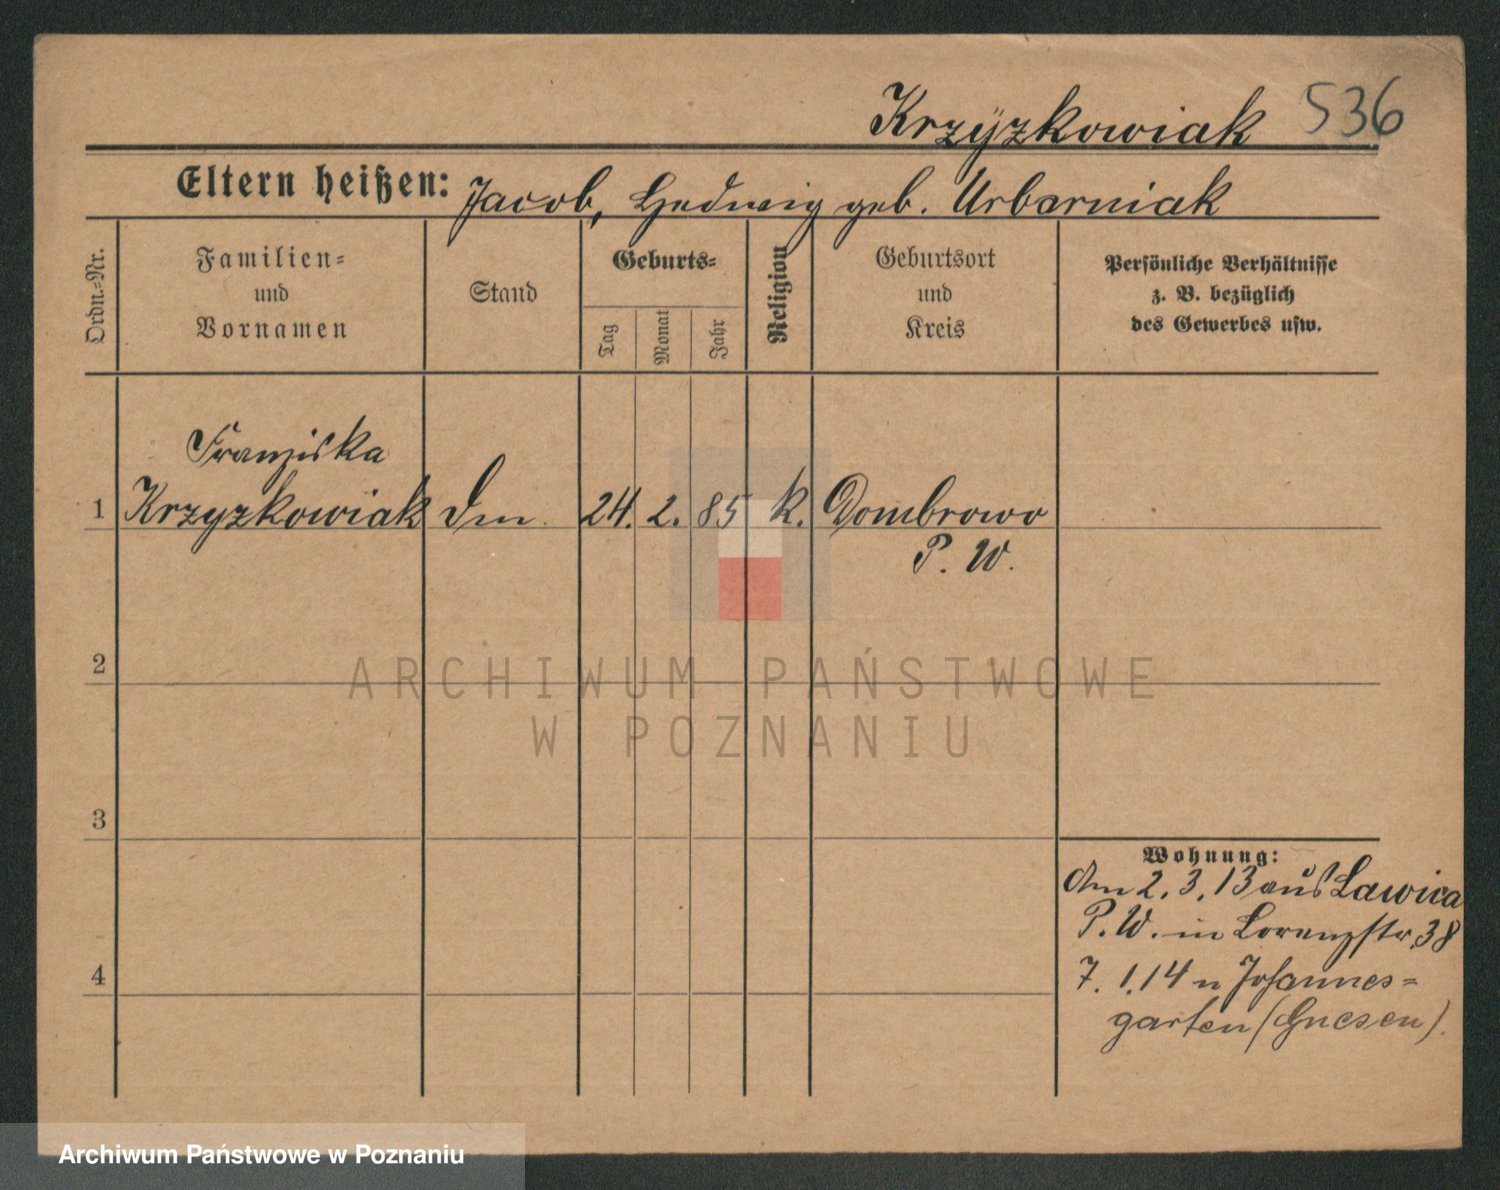 Krzyzkowiak 536
Eltern heißen: Jacob, Hedwig geb. Urbarniak
Ordn.-Nr.
Familien-
und
Vornamen
Stand
Geburts-
Tag
Monat
Jahr
Religion
Geburtsort
und
Kreis
Persönliche Verhältnisse
z. B. bezüglich
des Gewerbes usw.
Franziska
1 Krzyzkowiak 24. 2. 85 k. Dombrowo
P. W.
2
3
4
Wohnung:
Am 2. 3. 13 aus Lawica
P. W. in Lorenzstr. 38
7. 1. 14 n Johannes-
garten (Gnesen).
ARCHIWUM PAŃSTWOWE
W POZNANIU
Archiwum Państwowe w Poznaniu